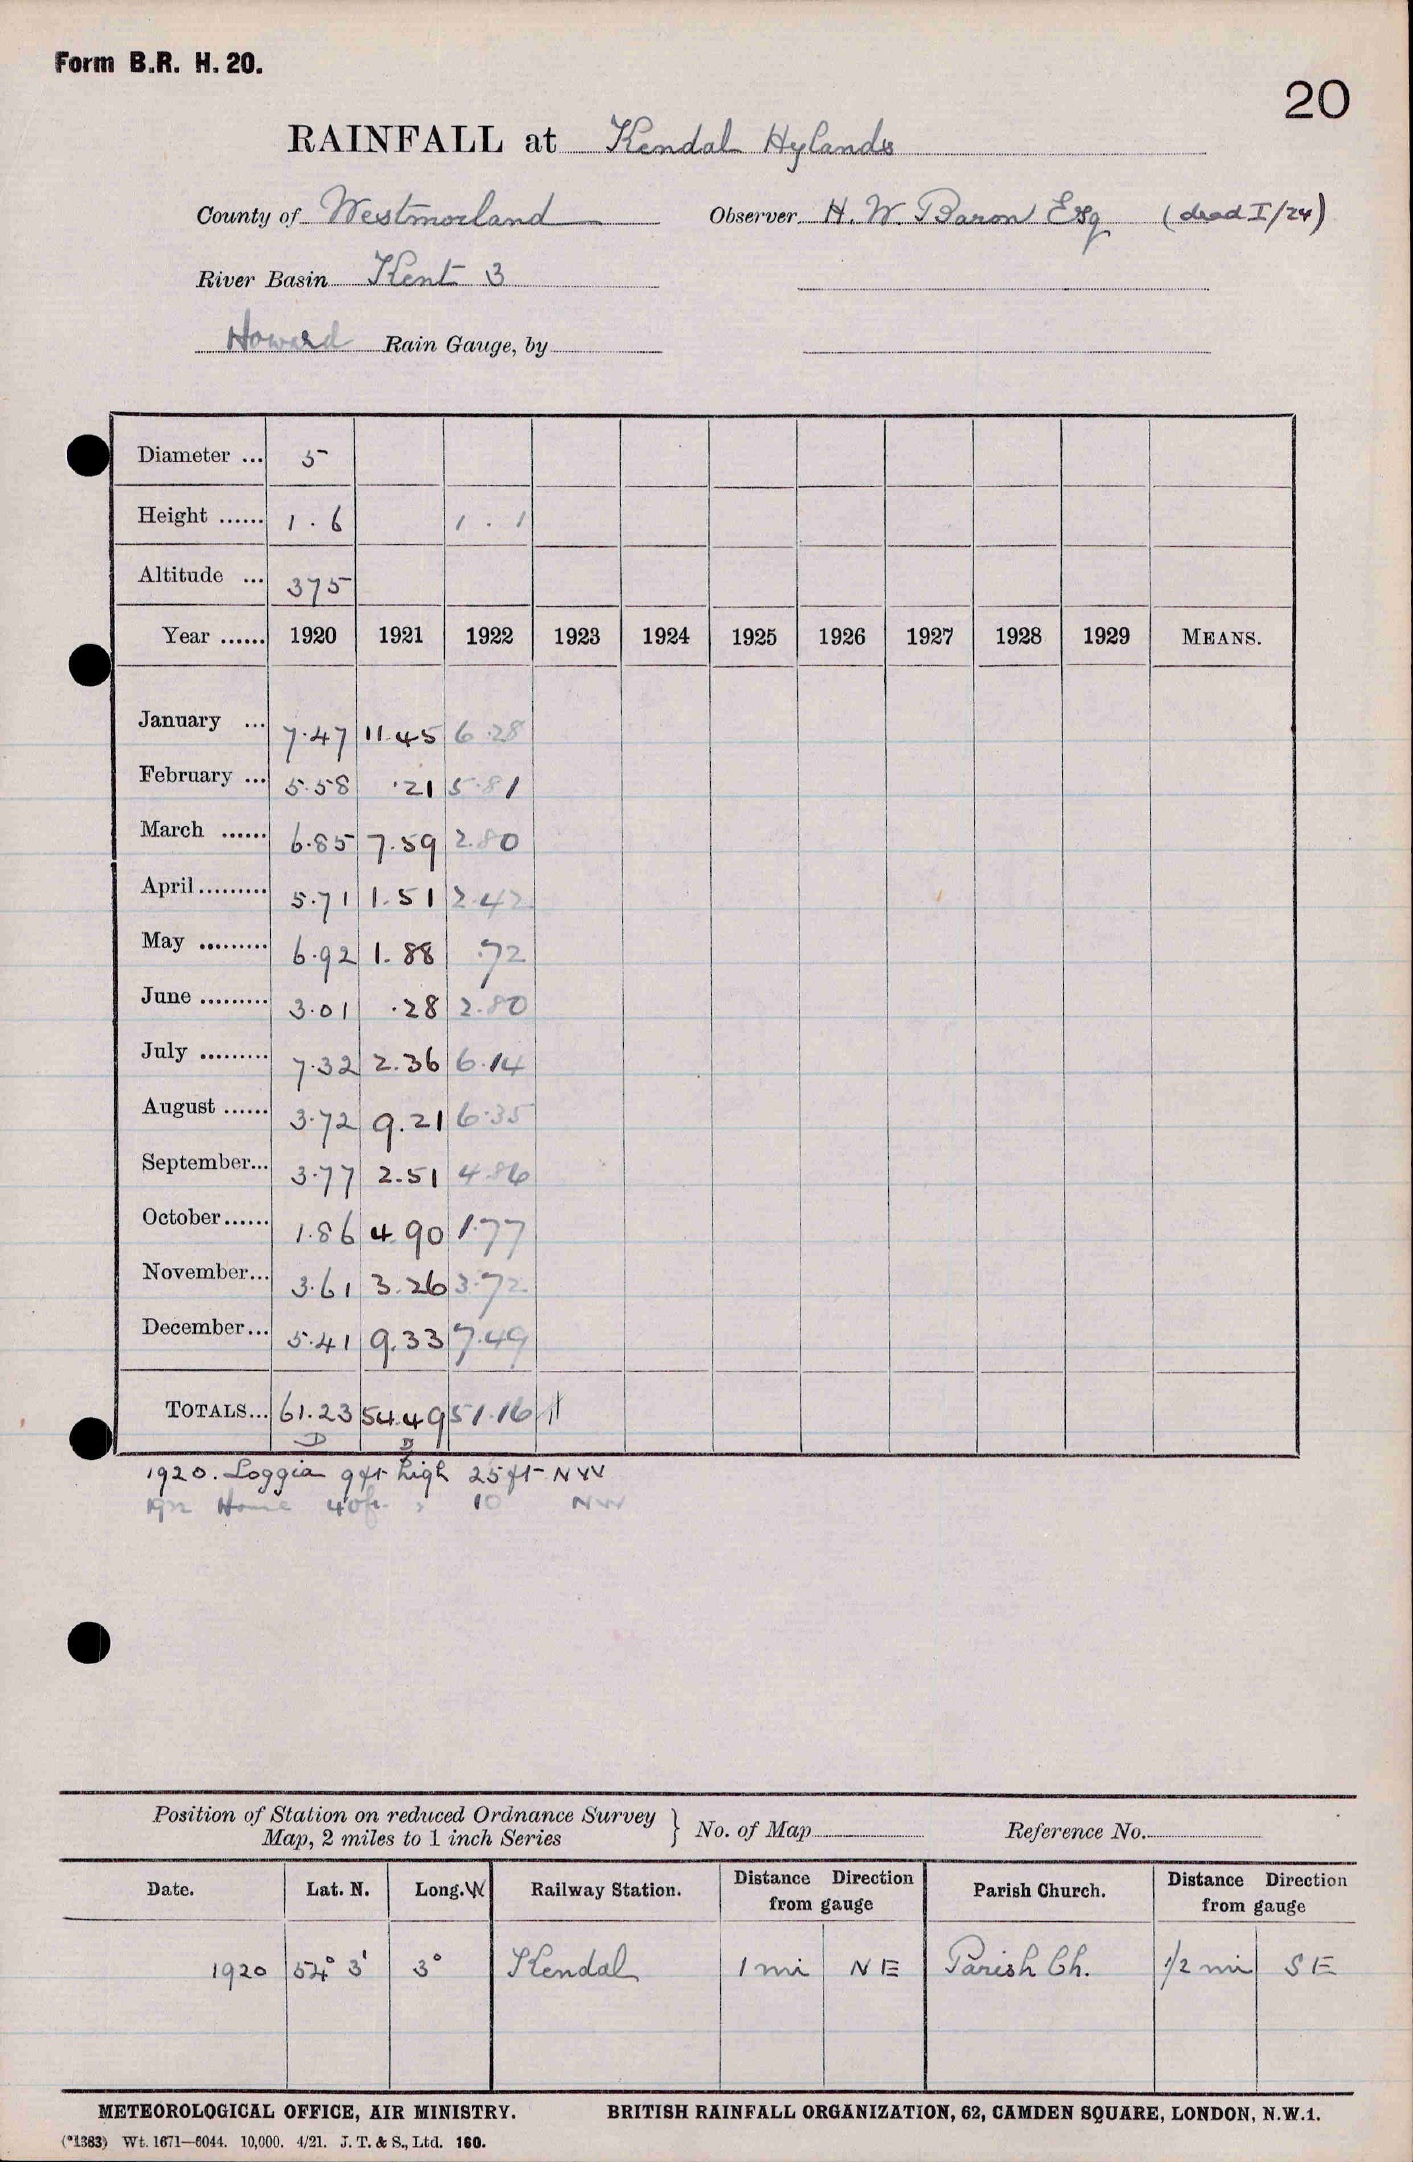 Form B.R. H. 20.
20
RAINFALL at Kendal Hylands
County of Westmorland Observer H. W. Baron Esq (dead I/24)
River Basin Kent 3
Howard Rain Gauge, by
Diameter ... 5
Height ...... 1 . 6 1 . 1
Altitude ... 375
Year ...... 1920 1921 1922 1923 1924 1925 1926 1927 1928 1929 MEANS.
January ... 7.47 11.45 6.28
February ... 5.58 .21 5.81
March ...... 6.85 7.59 2.80
April ......... 5.71 1.51 2.42
May ......... 6.92 1.88 .72
June ......... 3.01 .28 2.80
July ......... 7.32 2.36 6.14
August ...... 3.72 9.21 6.35
September... 3.77 2.51 4.86
October...... 1.86 4.90 1.77
November... 3.61 3.26 3.72
December... 5.41 9.33 7.49
TOTALS... 61.23 54.49 51.16
1920. Loggia 9ft high 25ft NW
1922 House 40ft " 10 NW
Position of Station on reduced Ordnance Survey
Map, 2 miles to 1 inch Series } No. of Map Reference No.
Date. Lat. N. Long. W Railway Station. Distance Direction from gauge Parish Church. Distance Direction from gauge
1920 54° 3' 3° Kendal 1 mi NE Parish Ch. 1/2 mi SE
METEOROLOGICAL OFFICE, AIR MINISTRY. BRITISH RAINFALL ORGANIZATION, 62, CAMDEN SQUARE, LONDON, N.W.1.
(*1383) Wt. 1671—6044. 10,000. 4/21. J. T. & S., Ltd. 160.